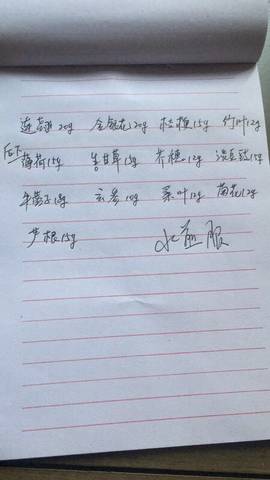 连翘20g 金银花20g 桔梗15g 竹叶12g
后下 薄荷15g 生甘草15g 芥穗12g 淡豆豉15g
牛蒡子18g 玄参10g 桑叶12g 菊花12g
芦根15g 水煎服